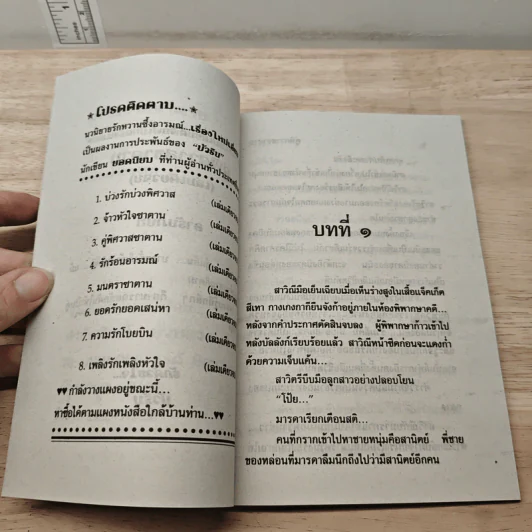 โปรดติดตาม....
นวนิยายรักหวานซึ้งอารมณ์...เรื่องใหม่
เป็นผลงานการประพันธ์ของ "บัวริน"
นักเขียน ยอดนิยม ที่ท่านผู้อ่านทั่วประเทศ
1. บ่วงรักบ่วงพิศวาส (เล่มเดียว
2. จ้าวหัวใจซาตาน (เล่มเดียว
3. คู่พิศวาสซาตาน (เล่มเดียว
4. รักร้อนอารมณ์ (เล่มเดียว
5. มนตราซาตาน (เล่มเดียว
6. ยอดรักยอดเสน่หา (เล่มเดียว
7. ความรักโบยบิน (เล่มเดียว
8. เพลิงรักเพลิงหัวใจ (เล่มเดียว
♥♥ กำลังวางแผงอยู่ขณะนี้...
หาซื้อได้ตามแผงหนังสือใกล้บ้านท่าน...♥♥
บทที่ ๑
สาวิณีมือเย็นเฉียบเมื่อเห็นร่างสูงในเสื้อแจ็คเก็ต
สีเทา กางเกงกากียีนจังก้าอยู่ภายในห้องพิพากษาคดี...
หลังจากคำประกาศตัดสินจบลง ผู้พิพากษาก้าวเข้าไป
หลังบัลลังก์เรียบร้อยแล้ว สาวิณีหน้าซีดก่อนจะแดงก่ำ
ด้วยความเจ็บแค้น...
สาวิตรีบีบมือลูกสาวอย่างปลอบโยน
"โป้ย..."
มารดาเรียกเตือนสติ...
คนที่กรากเข้าไปหาชายหนุ่มคือสานิตย์ พี่ชาย
ของหล่อนที่มารดาลืมนึกถึงไปว่ามีสานิตย์อีกคน